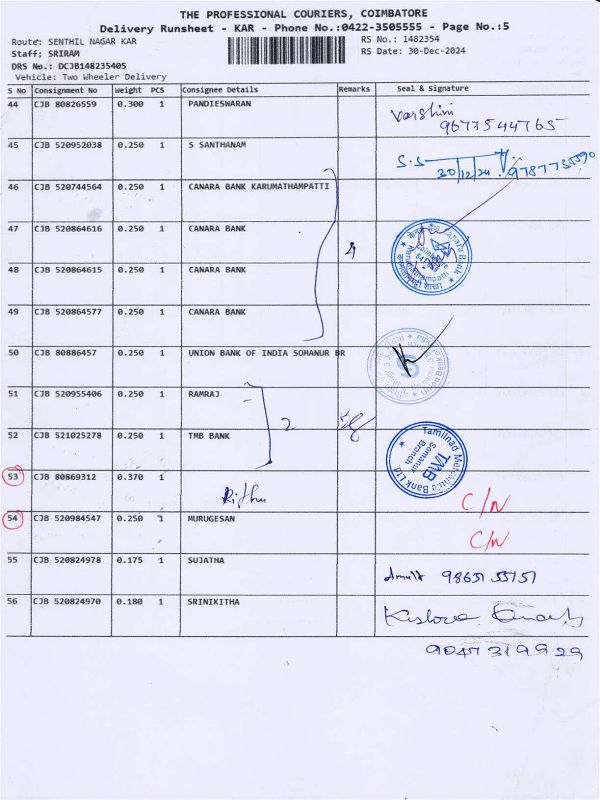 THE PROFESSIONAL COURIERS, COIMBATORE
Delivery Runsheet - KAR - Phone No.:0422-3505555 - Page No.:5
Route: SENTHIL NAGAR KAR
RS No.: 1482354
Staff; SRIRAM
RS Date: 30-Dec-2024
DRS No.: DCJB148235405
Vehicle: Two Wheeler Delivery
S No Consignment No Weight PCS Consignee Details Remarks Seal & Signature
44 CJB 80826559 0.300 1 PANDIESWARAN
Varshini
9677544765
45 CJB 520952038 0.250 1 S SANTHANAM
S.S
30/12/24
46 CJB 520744564 0.250 1 CANARA BANK KARUMATHAMPATTI
47 CJB 520864616 0.250 1 CANARA BANK
4
Canara Bank
48 CJB 520864615 0.250 1 CANARA BANK
49 CJB 520864577 0.250 1 CANARA BANK
50 CJB 80886457 0.250 1 UNION BANK OF INDIA SOMANUR BR
51 CJB 520955406 0.250 1 RAMRAJ
2
52 CJB 521025278 0.250 1 TMB BANK
Tamilnad Mercantile Bank Ltd.
Somanur
Branch
TMB
53 CJB 80869312 0.370 1
Rithu
C/N
54 CJB 520984547 0.250 1 MURUGESAN
C/N
55 CJB 520824978 0.175 1 SUJATHA
56 CJB 520824970 0.180 1 SRINIKITHA
9047319929